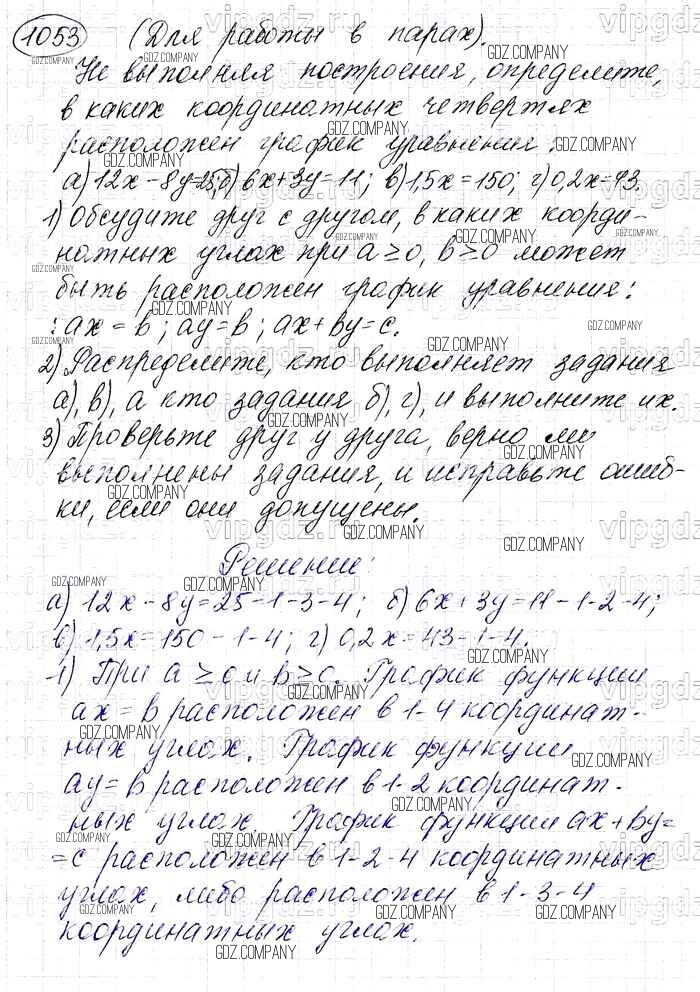 1053 (Для работы в парах).
Не выполняя построения, определите,
в каких координатных четвертях
расположен график уравнения:
а) 12x - 8y = 25; б) 6x + 3y = 11; в) 1,5x = 150; г) 0,2x = 43.
1) Обсудите друг с другом, в каких коорди-
натных углах при a ≥ 0, b ≥ 0 может
быть расположен график уравнения:
: ax = b; ay = b; ax + by = c.
2) Распределите, кто выполняет задания
а), в), а кто задания б), г), и выполните их.
3) Проверьте друг у друга, верно ли
выполнены задания, и исправьте ошиб-
ки, если они допущены.
Решение:
а) 12x - 8y = 25 - 1 - 3 - 4; б) 6x + 3y = 11 - 1 - 2 - 4;
в) 1,5x = 150 - 1 - 4; г) 0,2x = 43 - 1 - 4.
1) При a ≥ 0 и b ≥ 0. График функции
ax = b расположен в 1-4 координат-
ных углах. График функции
ay = b расположен в 1-2 координат-
ных углах. График функции ax + by =
= c расположен в 1-2-4 координатных
углах, либо расположен в 1-3-4
координатных углах.